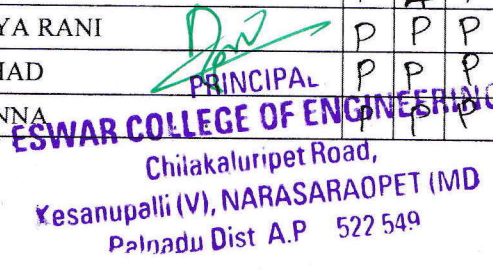 YA RANI P P P
MAD P P P
NNA P P P
PRINCIPAL
ESWAR COLLEGE OF ENGINEERING
Chilakaluripet Road,
Kesanupalli (V), NARASARAOPET (MD
Palnadu Dist A.P 522 549